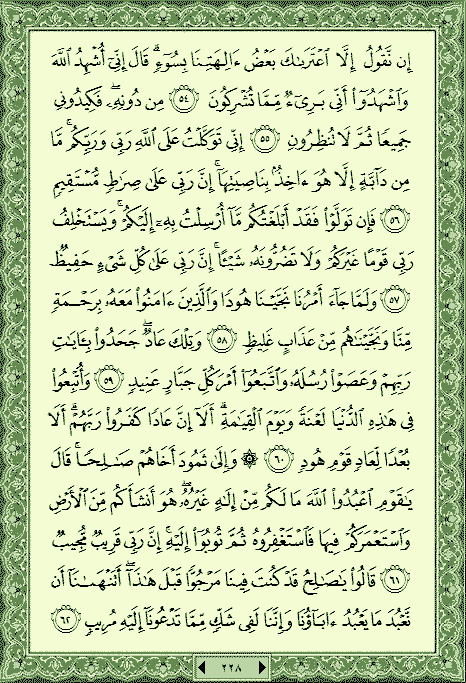 إِن نَّقُولُ إِلَّا ٱعْتَرَىٰكَ بَعْضُ ءَالِهَتِنَا بِسُوٓءٍۗ قَالَ إِنِّىٓ أُشْهِدُ ٱللَّهَ
وَٱشْهَدُوٓا۟ أَنِّى بَرِىٓءٌ مِّمَّا تُشْرِكُونَ ﴿٥٤﴾ مِن دُونِهِۦۖ فَكِيدُونِى
جَمِيعًا ثُمَّ لَا تُنظِرُونِ ﴿٥٥﴾ إِنِّى تَوَكَّلْتُ عَلَى ٱللَّهِ رَبِّى وَرَبِّكُمۚ مَّا
مِن دَآبَّةٍ إِلَّا هُوَ ءَاخِذٌۢ بِنَاصِيَتِهَآۚ إِنَّ رَبِّى عَلَىٰ صِرَٰطٍ مُّسْتَقِيمٍ
﴿٥٦﴾ فَإِن تَوَلَّوْا۟ فَقَدْ أَبْلَغْتُكُم مَّآ أُرْسِلْتُ بِهِۦٓ إِلَيْكُمْۚ وَيَسْتَخْلِفُ
رَبِّى قَوْمًا غَيْرَكُمْ وَلَا تَضُرُّونَهُۥ شَيْـًٔاۚ إِنَّ رَبِّى عَلَىٰ كُلِّ شَىْءٍ حَفِيظٌ
﴿٥٧﴾ وَلَمَّا جَآءَ أَمْرُنَا نَجَّيْنَا هُودًا وَٱلَّذِينَ ءَامَنُوا۟ مَعَهُۥ بِرَحْمَةٍ
مِّنَّا وَنَجَّيْنَٰهُم مِّنْ عَذَابٍ غَلِيظٍ ﴿٥٨﴾ وَتِلْكَ عَادٌۖ جَحَدُوا۟ بِـَٔايَٰتِ
رَبِّهِمْ وَعَصَوْا۟ رُسُلَهُۥ وَٱتَّبَعُوٓا۟ أَمْرَ كُلِّ جَبَّارٍ عَنِيدٍ ﴿٥٩﴾ وَأُتْبِعُوا۟
فِى هَٰذِهِ ٱلدُّنْيَا لَعْنَةً وَيَوْمَ ٱلْقِيَٰمَةِۗ أَلَآ إِنَّ عَادًا كَفَرُوا۟ رَبَّهُمْۗ أَلَا
بُعْدًا لِّعَادٍ قَوْمِ هُودٍ ﴿٦٠﴾ ۞ وَإِلَىٰ ثَمُودَ أَخَاهُمْ صَٰلِحًاۚ قَالَ
يَٰقَوْمِ ٱعْبُدُوا۟ ٱللَّهَ مَا لَكُم مِّنْ إِلَٰهٍ غَيْرُهُۥۖ هُوَ أَنشَأَكُم مِّنَ ٱلْأَرْضِ
وَٱسْتَعْمَرَكُمْ فِيهَا فَٱسْتَغْفِرُوهُ ثُمَّ تُوبُوٓا۟ إِلَيْهِۚ إِنَّ رَبِّى قَرِيبٌ مُّجِيبٌ
﴿٦١﴾ قَالُوا۟ يَٰصَٰلِحُ قَدْ كُنتَ فِينَا مَرْجُوًّا قَبْلَ هَٰذَآۖ أَتَنْهَىٰنَآ أَن
نَّعْبُدَ مَا يَعْبُدُ ءَابَآؤُنَا وَإِنَّنَا لَفِى شَكٍّ مِّمَّا تَدْعُونَآ إِلَيْهِ مُرِيبٍ ﴿٦٢﴾
٢٢٨